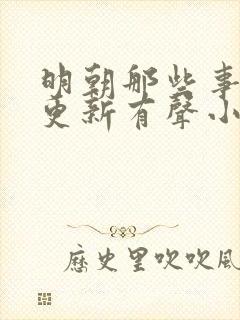 明朝那些事
更新有聲小
歷史里吹吹風